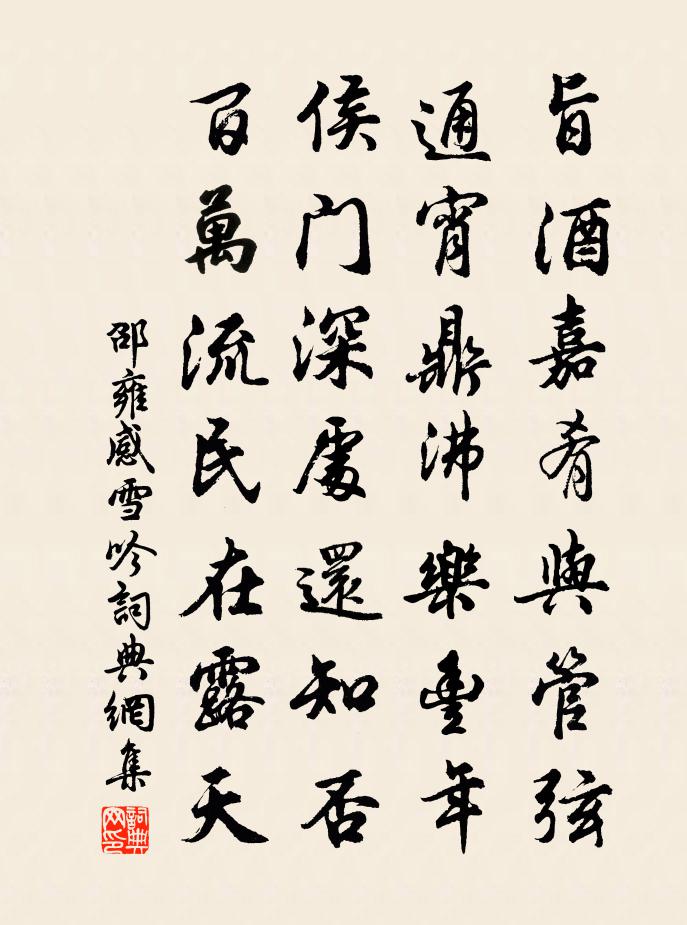 旨酒嘉肴與管弦
通宵鼎沸樂豐年
侯门深處還知否
百萬流民在露天
邵雍感雪吟詞典網集
詞典网印